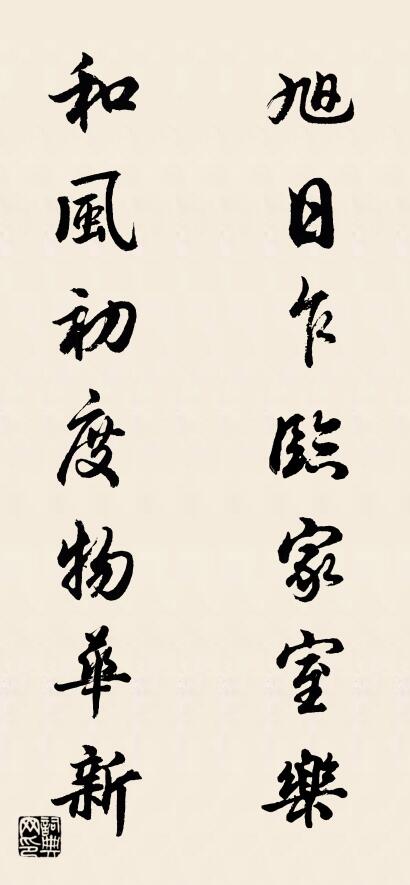 旭日乍臨家室樂
和風初度物華新
詞典网印